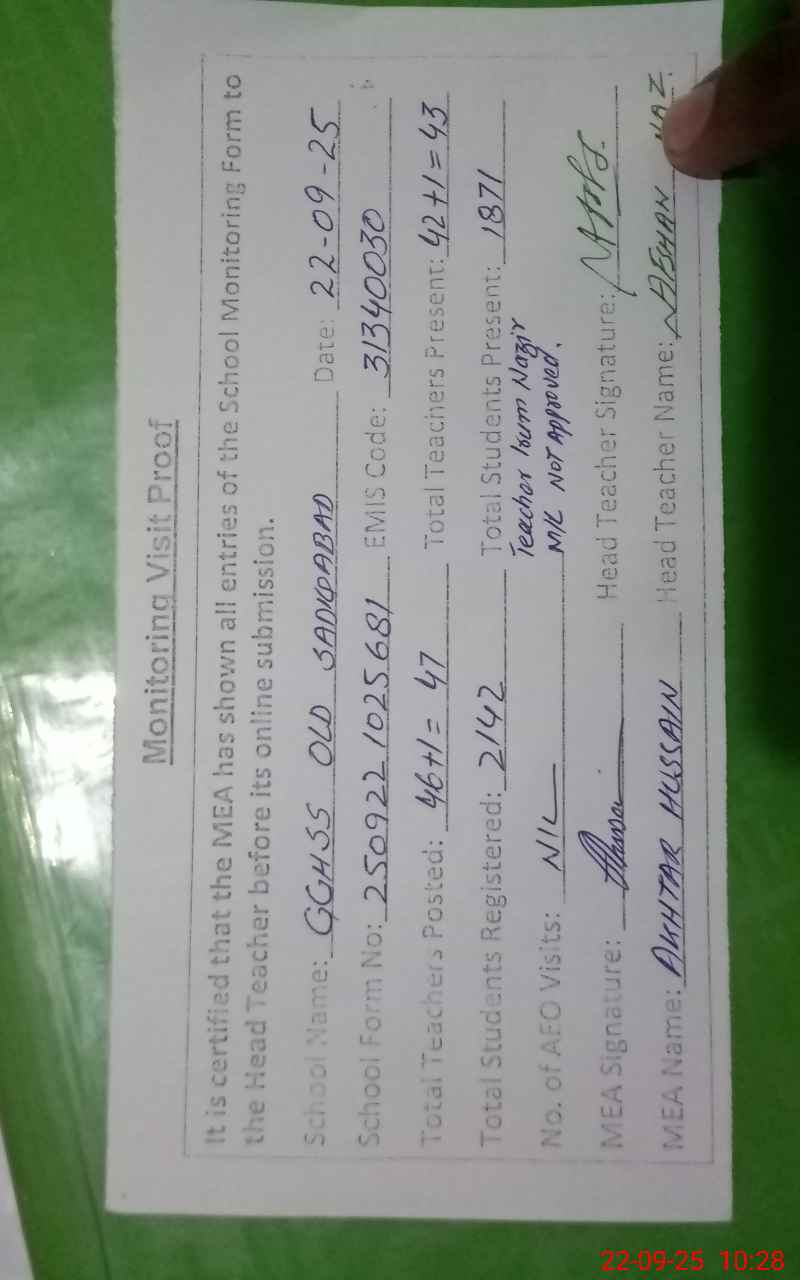 Monitoring Visit Proof
It is certified that the MEA has shown all entries of the School Monitoring Form to
the Head Teacher before its online submission.
School Name: GGHSS OLD SADIQABAD Date: 22-09-25
School Form No: 250922 1025681 EMIS Code: 31340030
Total Teachers Posted: 46+1= 47 Total Teachers Present: 42+1=43
Total Students Registered: 2142 Total Students Present: 1871
Teacher Irum Nazir
No. of AEO Visits: NIL M/L NOT Approved.
MEA Signature: Head Teacher Signature:
MEA Name: AKHTAR HUSSAIN Head Teacher Name:
22-09-25 10:28